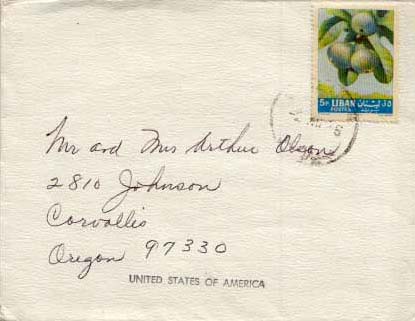 5P LIBAN لبنان ٥ق
POSTES
Mr and Mrs Arthur Olson
2810 Johnson
Corvallis
Oregon 97330
UNITED STATES OF AMERICA